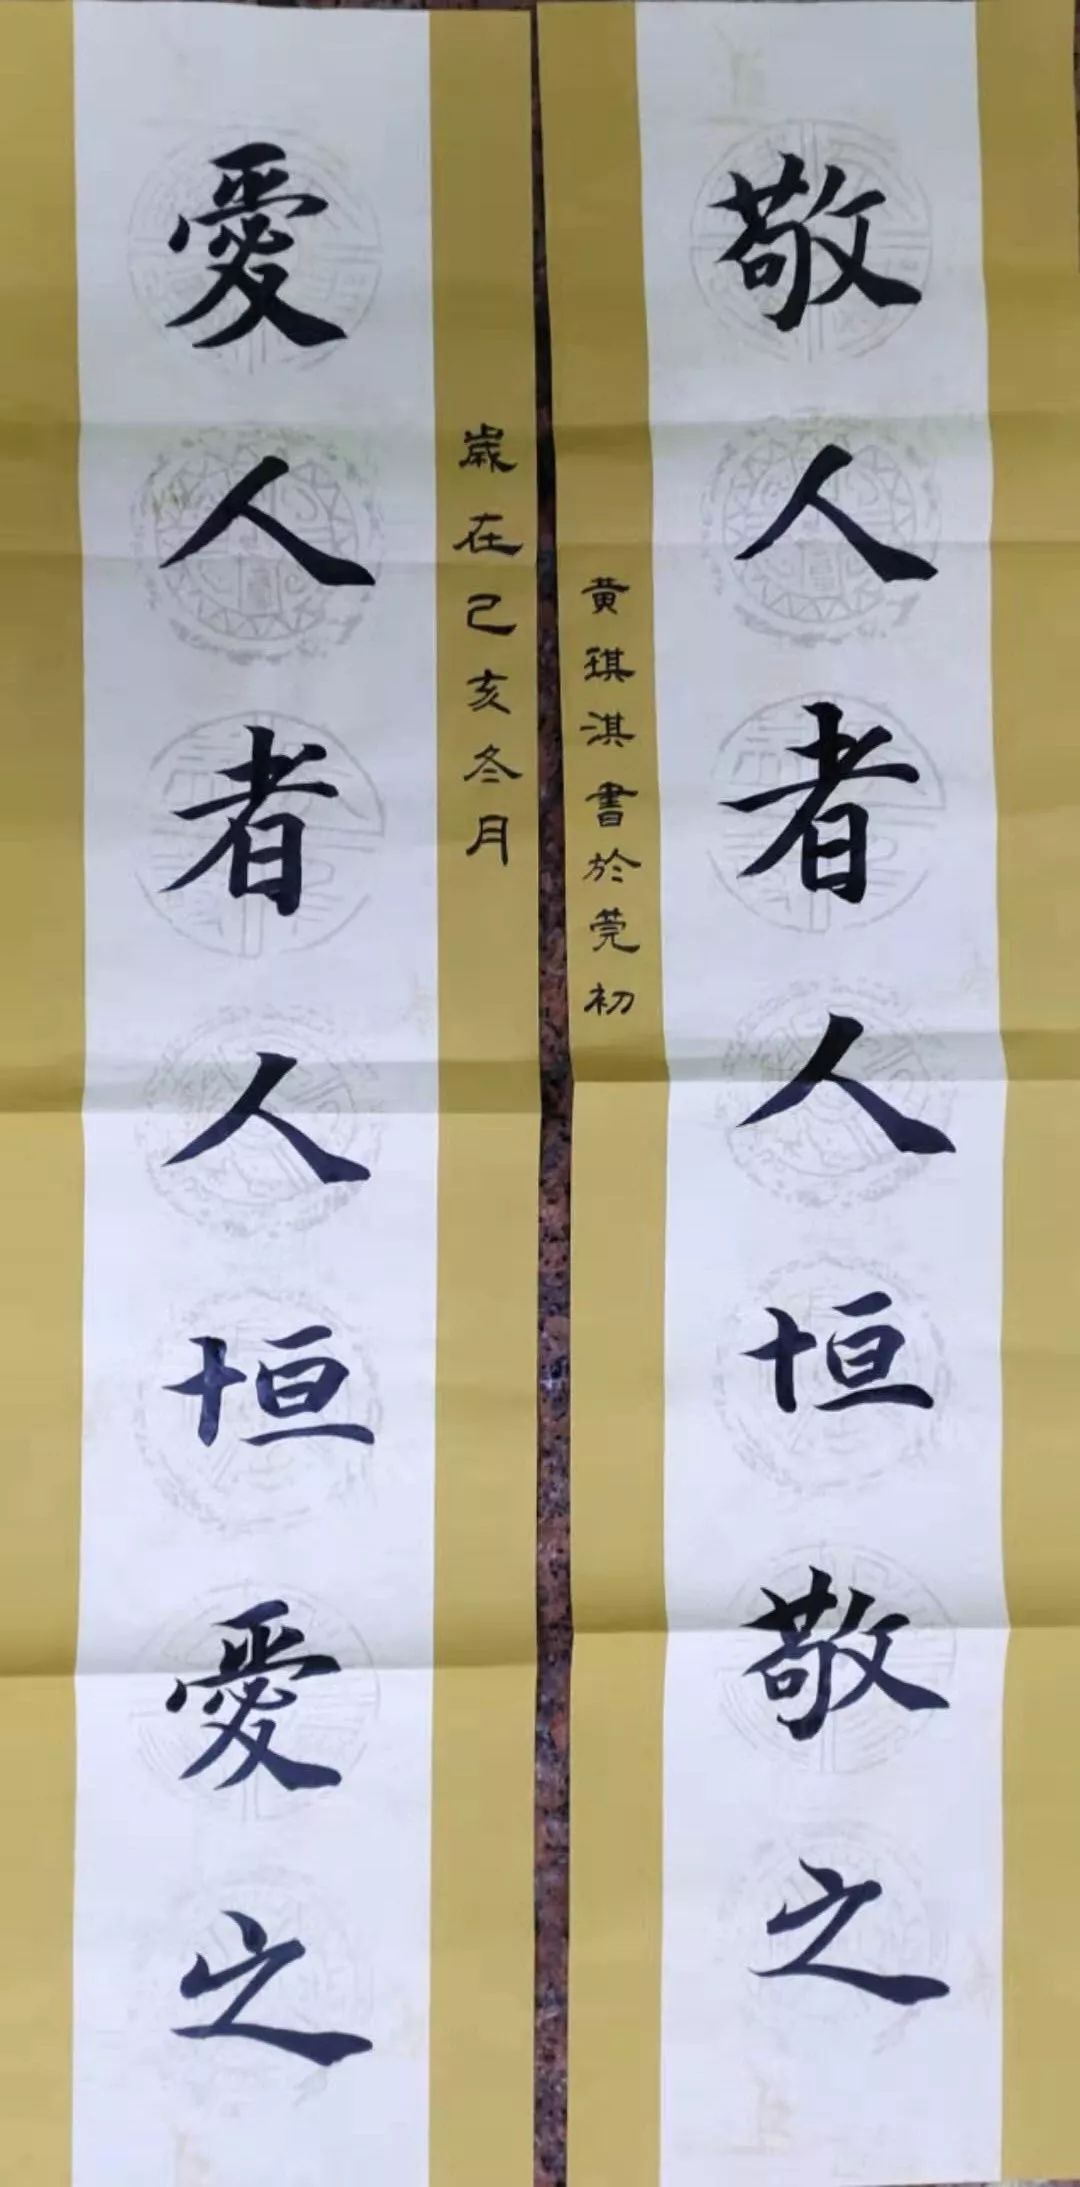 敬人者人恒敬之
黄琪淇書於莞初
歲在己亥冬月
愛人者人恒愛之